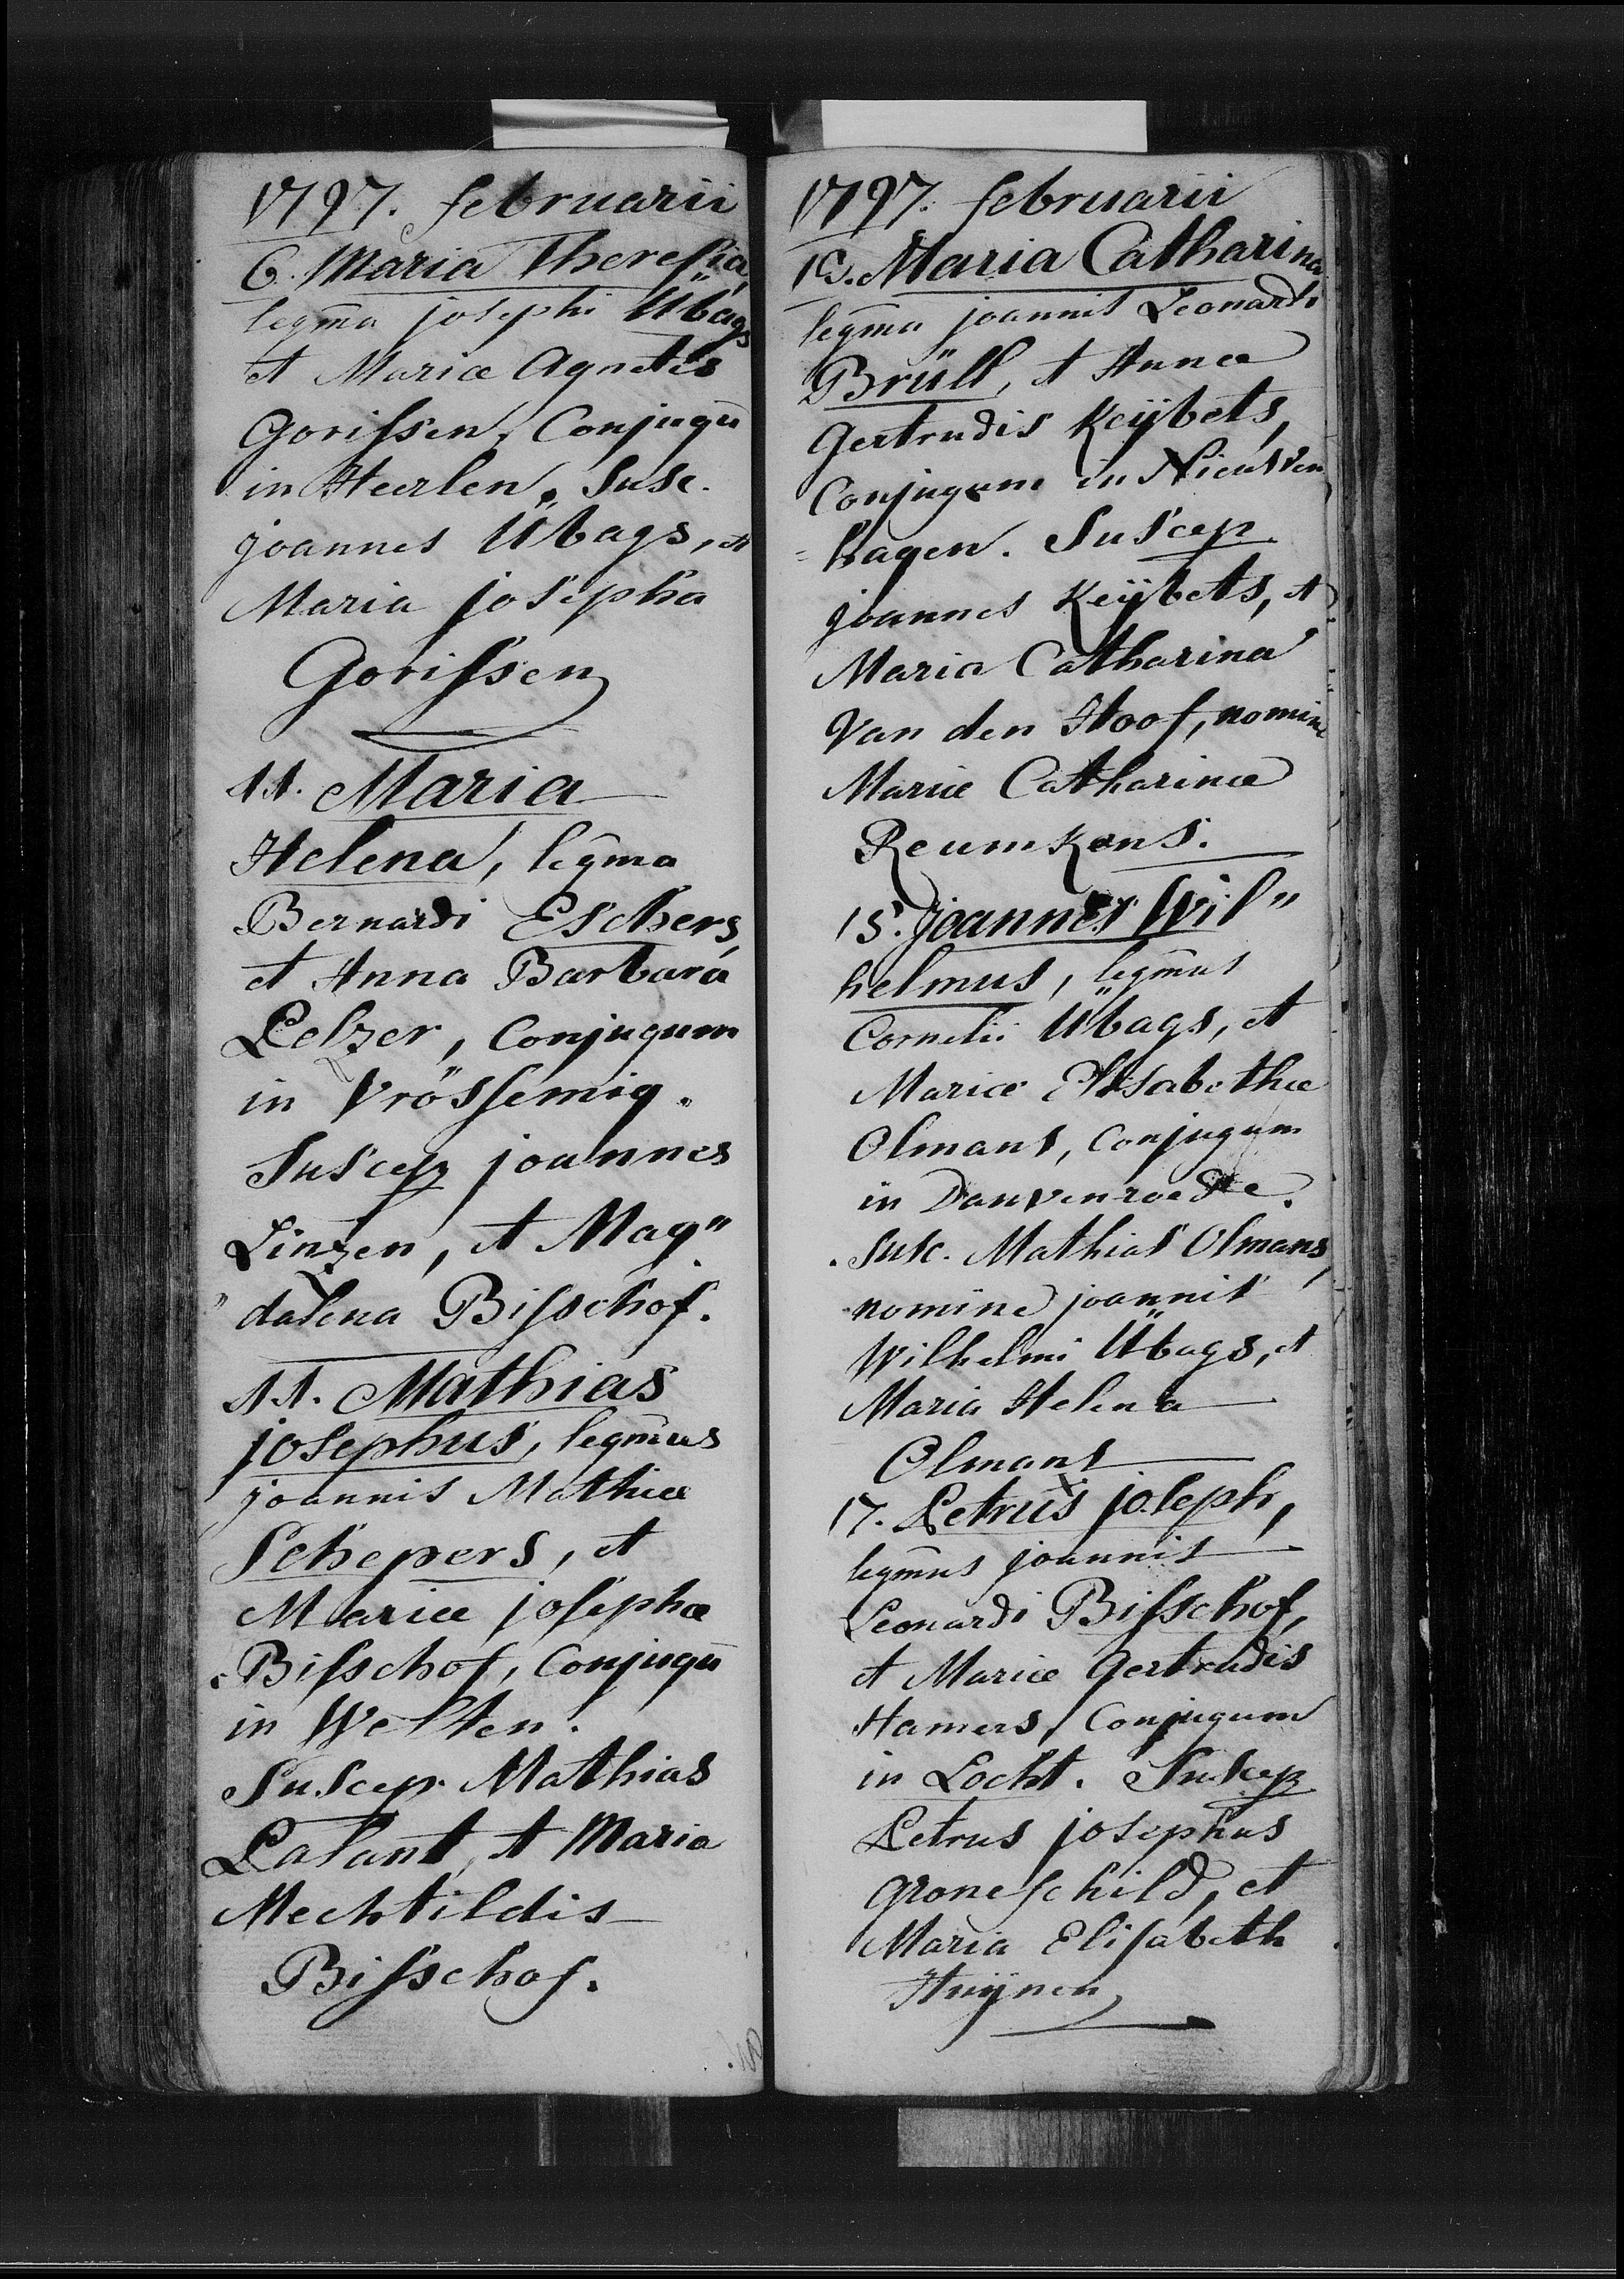 1797. februarii
6. Maria Theresia,
legma josephi Übags
et Mariæ Agnetis
Gorissen, Conjugū
in Heerlen. Susc.
joannes Übags, et
Maria josepha
Gorissen
11. Maria
Helena, legma
Bernardi Eschers,
et Anna Barbara
Pelzer, Conjugum
in Vrössemig.
Suscep joannes
Linzen, et Mag"
"dalena Bisschof.
11. Mathias
josephus, legmus
joannis Mathiæ
Schepers, et
Mariæ josephæ
Bisschof, Conjugū
in Welten.
Suscep. Mathias
Palant, et Maria
Mechtildis
Bisschof.
1797. februarii
Maria Catharina
legma joannis Leonardi
Brüll, et Annæ
Gertrudis Keÿbets,
Conjugum in Nieuwen
=hagen. Suscep
joannes Keÿbets, et
Maria Catharina
Van den Hoof, nomine
Mariæ Catharinæ
Reumkens.
15. joannes Wil"
helmus, legmus
Cornelii Übags, et
Mariæ Elisabethæ
Olmans, Conjugum
in
Susc. Mathias Olmans,
nomine joannis
Wilhelmi Übags, et
Maria Helena
Olmans
17. Petrus joseph,
legmus joannis
Leonardi Bisschof,
et Mariæ Gertrudis
Hamers, Conjugum
in Locht. Suscep
Petrus josephus
Groneschild, et
Maria Elisabeth
Huÿnen